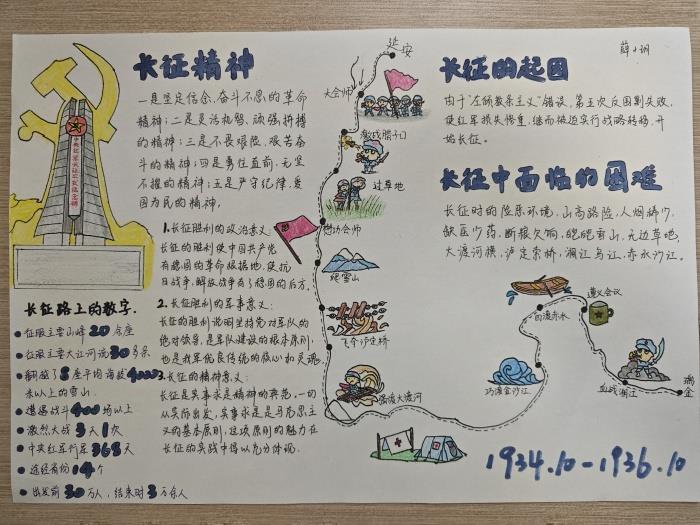 长征精神
一是坚定信念、奋斗不息的革命
精神;二是灵活机智、顽强拼搏
的精神;三是不畏艰险、艰苦奋
斗的精神;四是勇往直前,无坚
不摧的精神;五是严守纪律,爱
国为民的精神。
1.长征胜利的政治意义:
长征的胜利使中国共产党
有稳固的革命根据地,使抗
日战争,解放战争有了稳固的后方。
2.长征胜利的军事意义:
长征的胜利说明坚持党对军队的
绝对领导,是军队建设的根本原则,
也是我军优良传统的核心和灵魂
3.长征的精神意义:
长征是实事求是精神的典范,一切
从实而出发,实事求是是马克思主
义的基本原则,这项原则的魅力在
长征的实践中得以充分体现.
长征路上的数字.
征服主要山峰20余座
征服主要大江河流30多条
翻越了5座平均海拔4000
米以上的雪山.
遭遇战斗400场以上
激烈大战3天1次
中央红军行军368天
途经省份14个
出发前30万人,结束时3万余人
延安
大会师
激战腊子口
过草地
懋功会师
爬雪山
飞夺泸定桥
强渡大渡河
巧渡金沙江
四渡赤水
遵义会议
血战湘江
瑞金
长征的起因
由于"左倾教条主义"错误,第五次反围剿失败,
使红军损失惨重,继而被迫实行战略转移,开
始长征。
长征中面临的困难
长征时的险恶环境,山高路险,人烟稀少,
缺医少药,断粮欠响,皑皑雪山,无边草地,
大渡河横,泸定索桥,湘江乌江,赤水沙江.
1934.10-1936.10